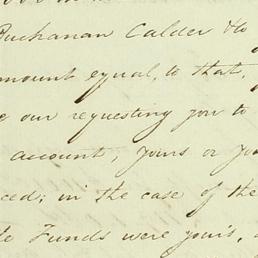 Buchanan Calder & Co
amount equal, to that,
our requesting you to
account, yours or
in the case of the
Funds were yours,